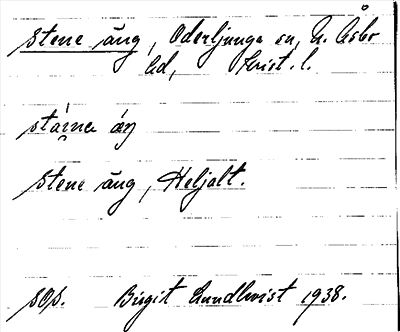 Stene äng, Oderljunga sn, N. Åsbo
hd, Krist. l.
stai̯na äŋ
Stene äng, Heljalt.
sOs. Birgit Lundkvist 1938.